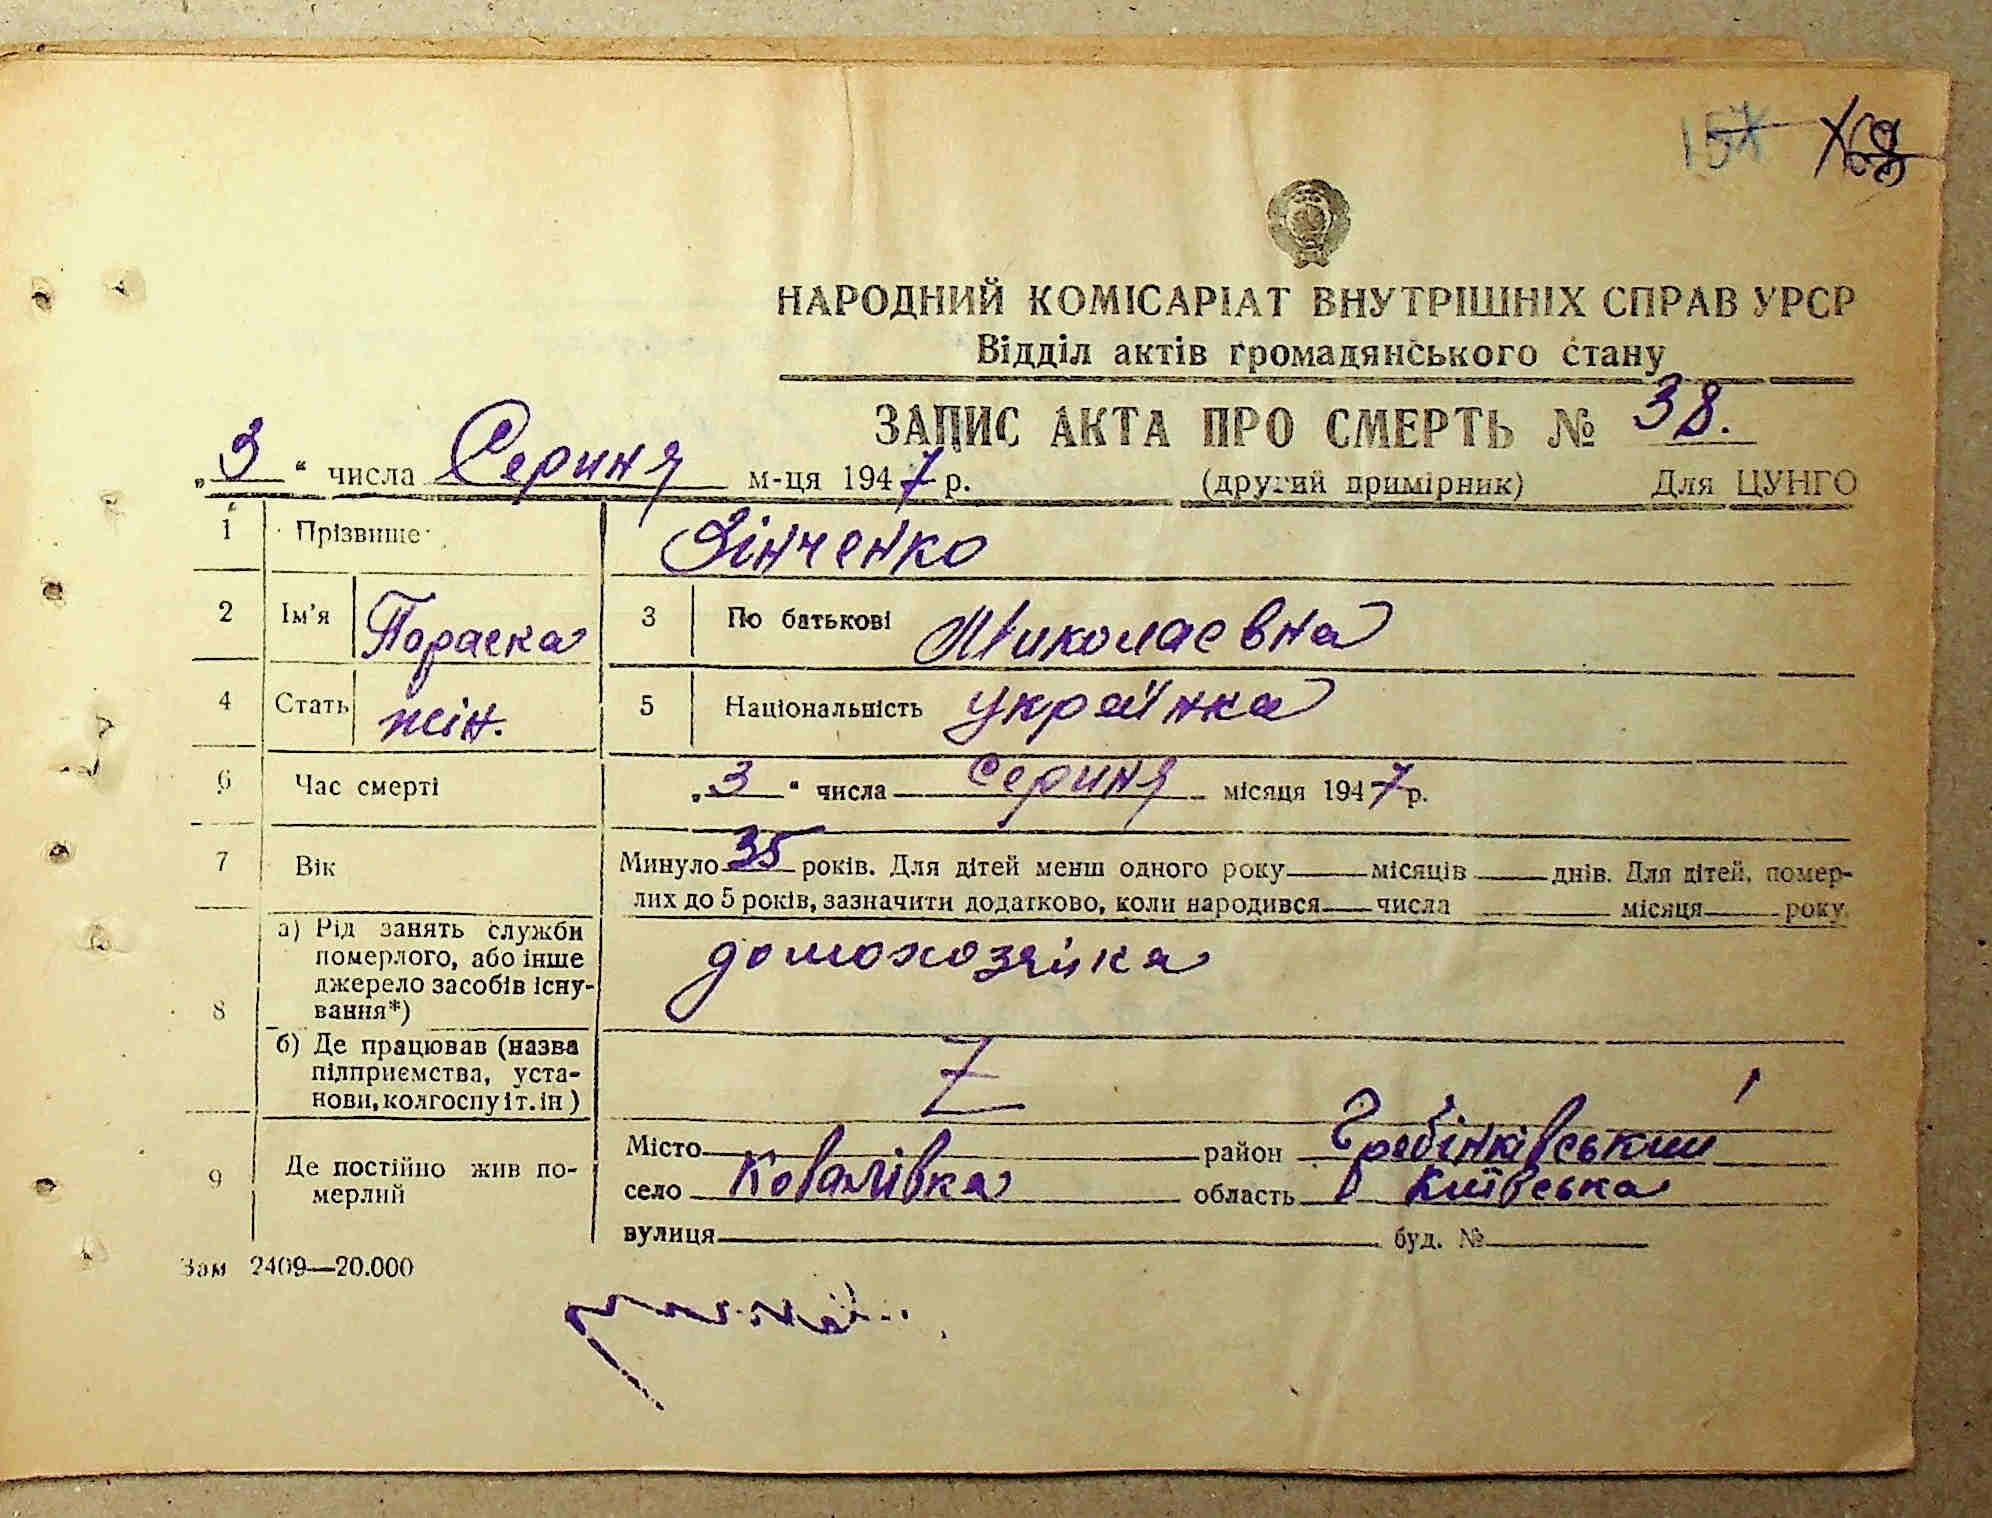 157
НАРОДНИЙ КОМІСАРІАТ ВНУТРІШНІХ СПРАВ УРСР
Відділ актів громадянського стану
ЗАПИС АКТА ПРО СМЕРТЬ № 38.
„3“ числа Серпня м-ця 1947 р. (другий примірник) Для ЦУНГО
1 Прізвище Зінченко
2 Ім'я Параска 3 По батькові Миколаевна
4 Стать жін. 5 Національність українка
6 Час смерті „3“ числа серпня місяця 1947 р.
7 Вік Минуло 35 років. Для дітей менш одного року місяців днів. Для дітей, помер-
лих до 5 років, зазначити додатково, коли народився числа місяця року
8 а) Рід занять служби
померлого, або інше
джерело засобів існу-
вання*)
домохозяйка
б) Де працював (назва
підприємства, уста-
нови, колгоспу і т. ін)
Z
9 Де постійно жив по-
мерлий
Місто район Гребінківський
село Ковалівка область Київська
вулиця буд. №
Зам 2409—20.000